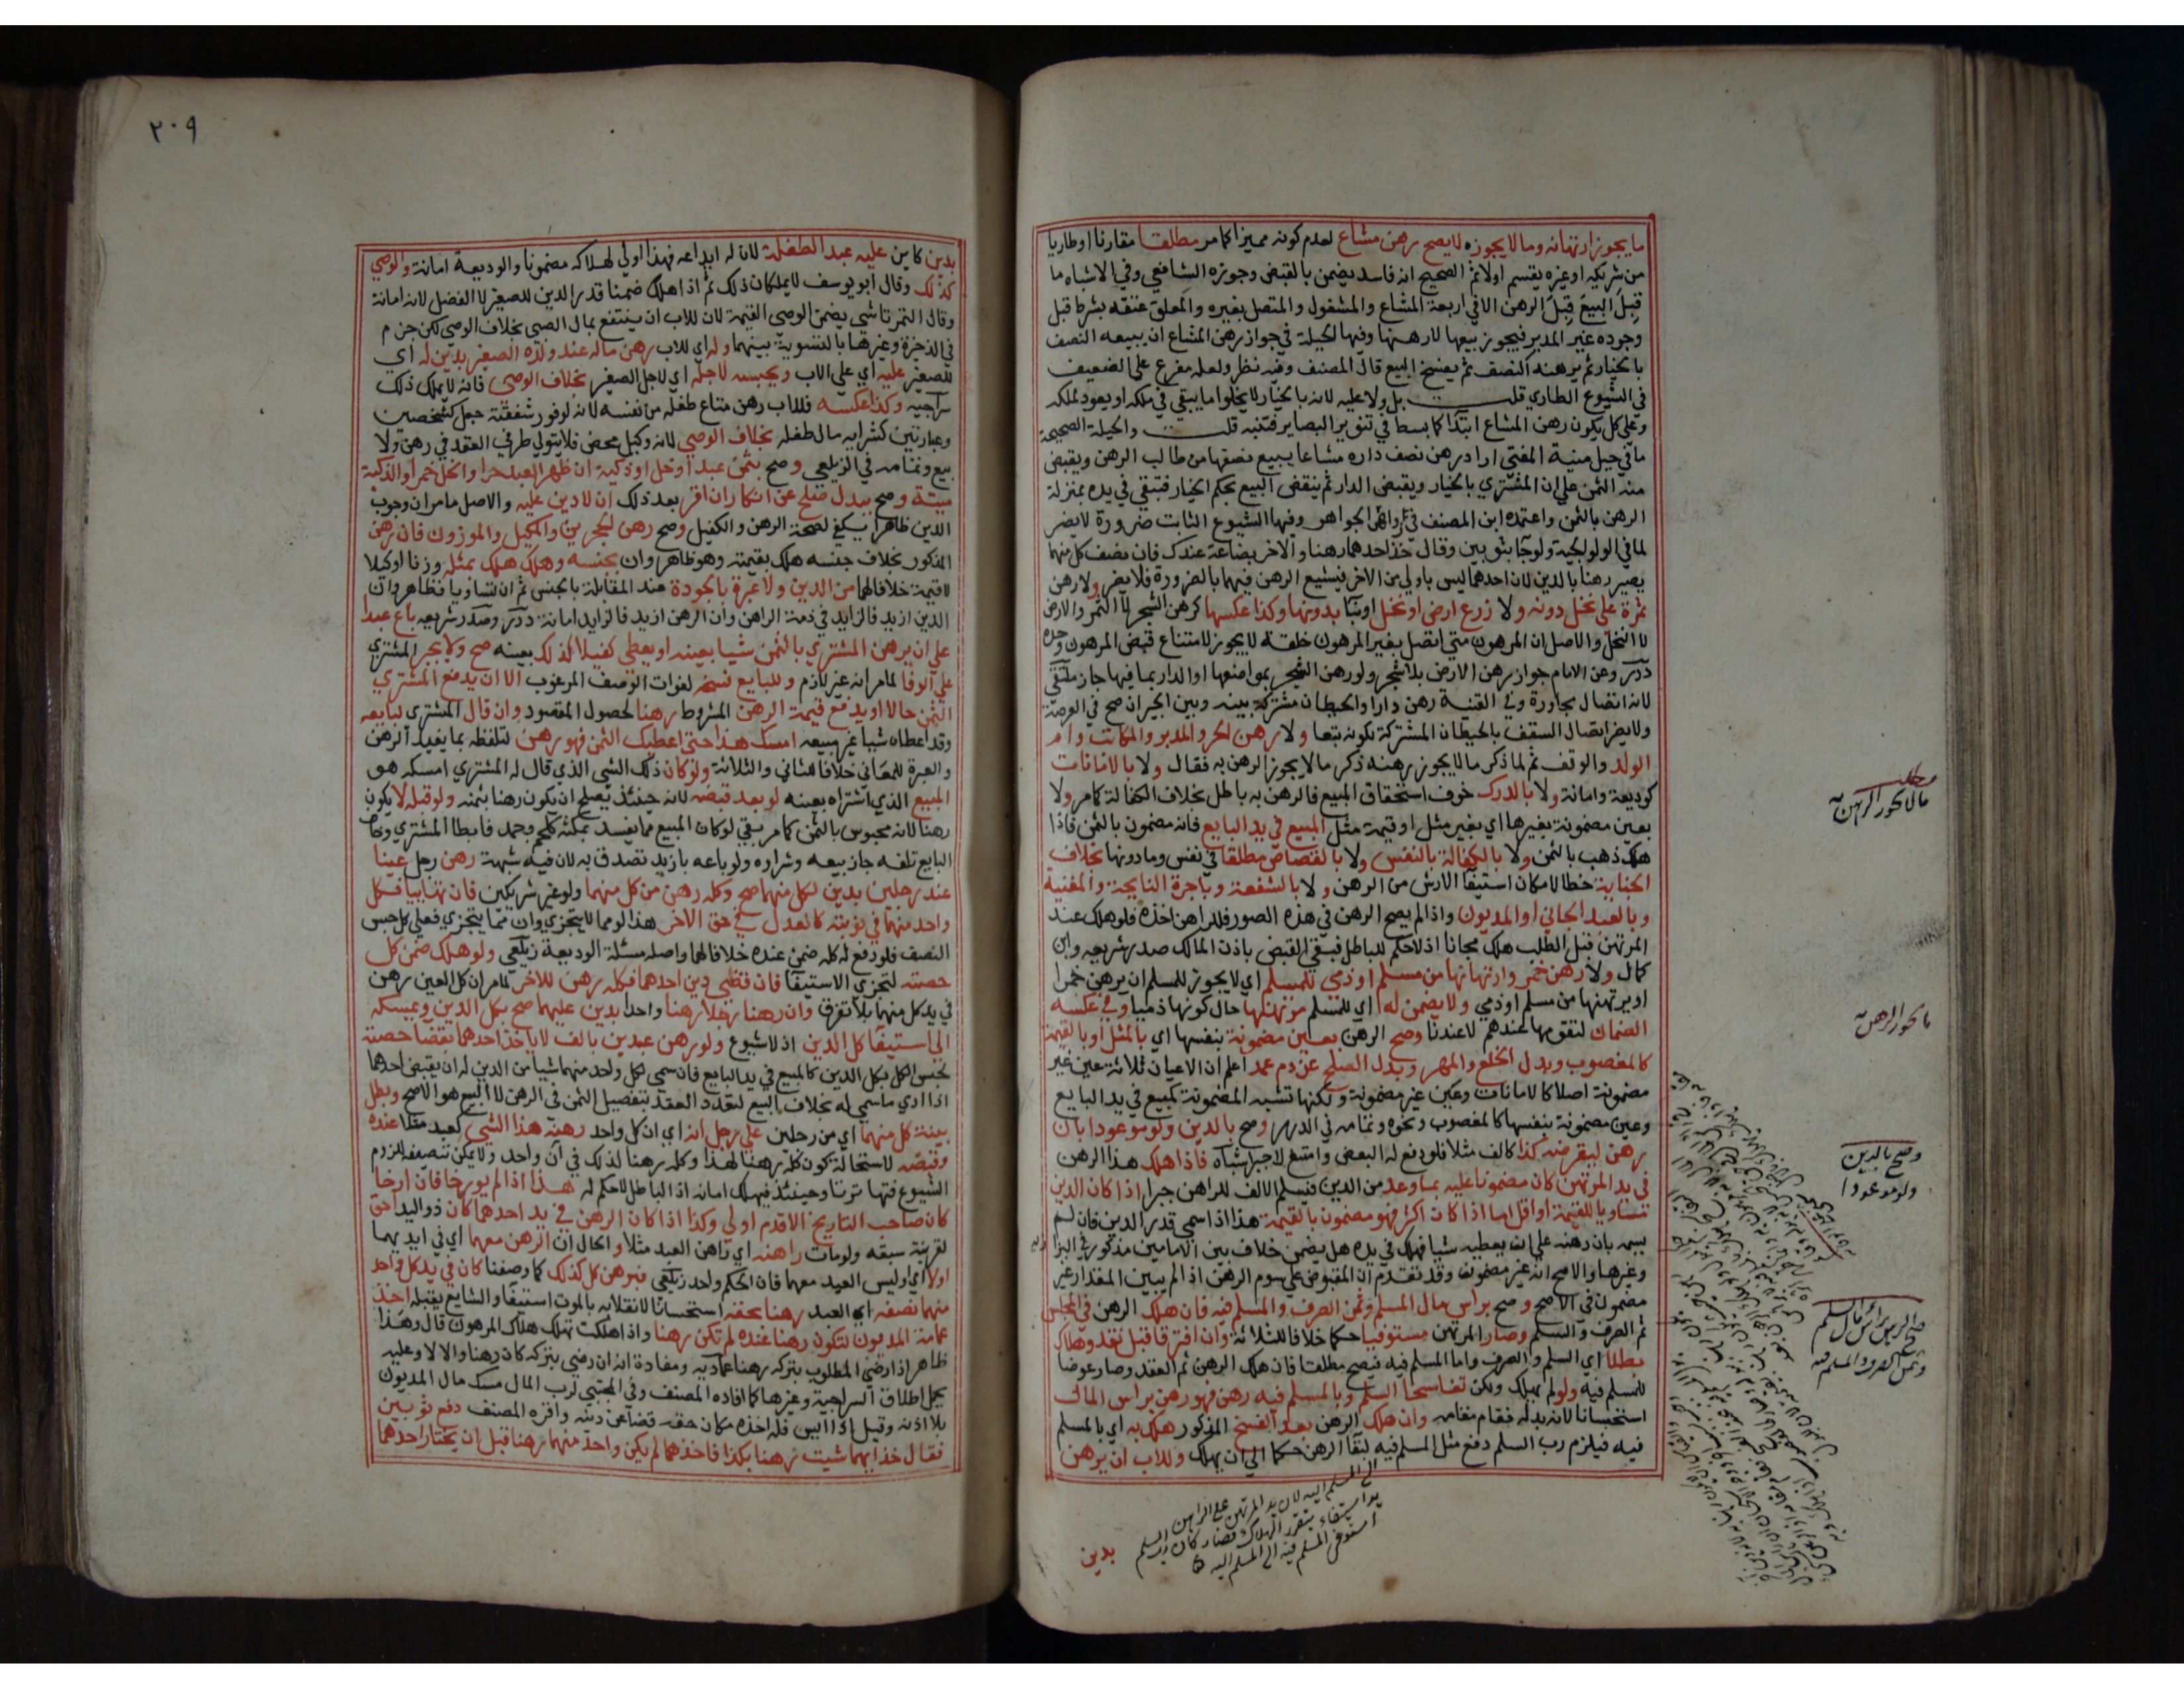 ما يجوز ارتهانه وما لا يجوزه لا يصح رهن مشاع لعدم كونه مميزا كما مر مطلقا مقارنا او طاريا
من شريكه او غيره يقسم اولا ثم الصحيح انه فاسد يضمن بالقبض وجوزه الشافعي وفي الاشباه ما
قبل البيع قبل الرهن الا في اربعة المشاع والمشغول والمتصل بغيره والمعلق عتقه بشرط قبل
وجوده غير المدبر فيجوز بيعها لا رهنها وفيها الحيلة في جواز رهن المشاع ان يبيعه النصف
بالخيار ثم يرهنه النصف ثم يفسخ البيع قال المصنف وفيه نظر ولعله مفرع على الضعيف
في الشيوع الطاري قلت بل ولا عليه لانه بالخيار لا يخلوا اما يبقي في ملكه او يعود لملكه
وعلى كل يكون رهن المشاع ابتدا كما بسط في تنوير البصاير فتنبه قلت والحيلة الصحيحة
ما في حيل منية المفتي اراد رهن نصف داره مشاعا يبيع نصفها من طالب الرهن ويقبض
منه الثمن على ان المشتري بالخيار ويقبض الدار ثم ينقض البيع بحكم الخيار فتبقي في يده بمنزلة
الرهن بالثمن واعتمده ابن المصنف في زواهر الجواهر وفيها الشيوع الثابت ضرورة لا يضر
لما في الولوالجية ولو جا بثوبين وقال خذ احدهما رهنا والاخر بضاعة عندك فان نصف كل منهما
يصير رهنا بالدين لان احدهما ليس باولي من الاخر فيشيع الرهن فيهما بالضرورة فلا يضر ولا رهن
ثمرة على نخل دونه ولا زرع ارض او نخل او بنا بدونها وكذا عكسها كرهن الشجر لا الثمر والارض
لا النخل والاصل ان المرهون متى اتصل بغير المرهون خلقة لا يجوز لامتناع قبض المرهون وحده
درر وعن الامام جواز رهن الارض بلا شجر ولو رهن الشجر بمواضعها او الدار بما فيها جاز ملتقى
لانه اتصال مجاورة وفي القنية رهن دارا والحيطان مشتركة بينه وبين الجيران صح في العرصة
ولا يضر اتصال السقف بالحيطان المشتركة لكونه تبعا ولا رهن الحر والمدبر والمكاتب وام
الولد والوقف ثم لما ذكر ما لا يجوز رهنه ذكر ما لا يجوز الرهن به فقال ولا بالامانات
كوديعة وامانة ولا بالدرك خوف استحقاق المبيع فالرهن به باطل بخلاف الكفالة كما مر ولا
بعين مضمونة بغيرها اي بغير مثل او قيمة مثل المبيع في يد البايع فانه مضمون بالثمن فاذا
هلك ذهب بالثمن ولا بالكفالة بالنفس ولا بالقصاص مطلقا في نفس وما دونها بخلاف
الجناية خطا لامكان استيفا الارش من الرهن ولا بالشفعة وباجرة النايحة والمغنية
وبالعبد الجاني او المديون واذا لم يصح الرهن في هذه الصور فللراهن اخذه فلو هلك عند
المرتهن قبل الطلب هلك مجانا اذ لا حكم للباطل فبقي القبض باذن المالك صدر شريعه وابن
كمال ولا رهن خمر وارتهانها من مسلم او ذمي للمسلم اي لا يجوز للمسلم ان يرهن خمرا
او يرتهنها من مسلم او ذمي ولا يضمن له اي للمسلم مرتهنها حال كونها ذميا وفي عكسه
الضمان لتقومها عندهم لا عندنا وصح الرهن بعين مضمونة بنفسها اي بالمثل او بالقيمة
كالمغصوب وبدل الخلع والمهر وبدل الصلح عن دم عمد اعلم ان الاعيان ثلاثة عين غير
مضمونة اصلا كالامانات وعين غير مضمونة ولكنها تشبه المضمونة كمبيع في يد البايع
وعين مضمونة بنفسها كالمغصوب ونحوه وتمامه في الدرر وصح بالدين ولو موعودا بان
رهن ليقرضه كذا كالف مثلا فلو دفع له البعض وامتنع لا جبر اشباه فاذا هلك هذا الرهن
في يد المرتهن كان مضمونا عليه بما وعد من الدين فيسلم الالف للراهن جبرا اذا كان الدين
مساويا للقيمة او اقل اما اذا كان اكثر فهو مضمون بالقيمة هذا اذا سمي قدر الدين فان لم
يسمه بان رهنه على ان يعطيه شيا فهلك في يده هل يضمن خلاف بين الامامين مذكور في البزازيه
وغيرها والاصح انه غير مضمون وقد تقدم ان المقبوض على سوم الرهن اذا لم يبين المقدار غير
مضمون في الاصح وصح براس مال السلم وثمن الصرف والمسلم فيه فان هلك الرهن في المجلس
تم الصرف والسلم وصار المرتهن مستوفيا حكما خلافا للثلاثة وان افترقا قبل نقد وهلاك
بطلا اي السلم والصرف واما المسلم فيه فيصح مطلقا فان هلك الرهن ثم العقد وصار عوضا
للمسلم فيه ولو لم يهلك ولكن تفاسخا السلم وبالمسلم فيه رهن فهو رهن براس المال
استحسانا لانه بدله فقام مقامه وان هلك الرهن بعد الفسخ المذكور هلك به اي بالمسلم
فيه فيلزم رب السلم دفع مثل المسلم فيه لبقا الرهن حكما الى ان يهلك وللاب ان يرهن
بدين
مطلب
ما لا يجوز الرهن به
ما يجوز الرهن به
وصح بالدين
ولو موعودا
صح الرهن براس مال السلم
وثمن الصرف والمسلم فيه
الى المسلم اليه لان يد المرتهن على الراهن
يد استيفاء يتقرر الهلاك فصار كان رب السلم
استوفى المسلم فيه الى المسلم اليه
٢٠٩
بدين كاين عليه عبد الطفله لان له ايداعه فهذا اولي لهلاكه مضمونا والوديعة امانة والوصي
كذلك وقال ابو يوسف لا يملكان ذلك ثم اذا هلك ضمنا قدر الدين للصغير لا الفضل لانه امانة
وقال التمرتاشي يضمن الوصي القيمة لان للاب ان ينتفع بمال الصبي بخلاف الوصي لكن جزم
في الذخيرة وغيرها بالتسوية بينهما وله اي للاب رهن ماله عند ولده الصغير بدين له اي
للصغير عليه اي على الاب ويحبسه لاجله اي لاجل الصغير بخلاف الوصي فانه لا يملك ذلك
سراجيه وكذا عكسه فللاب رهن متاع طفله من نفسه لانه لوفور شفقته جعل كشخصين
وعبارتين كشرايه مال طفله بخلاف الوصي لانه وكيل محض فلا يتولي طرفي العقد في رهن ولا
بيع وتمامه في الزيلعي وصح بثمن عبد او خل او ذكية ان ظهر العبد حرا والخل خمرا والذكية
ميتة وصح ببدل صلح عن انكار ان اقر بعد ذلك ان لا دين عليه والاصل ما مر ان وجوب
الدين ظاهرا يكفي لصحة الرهن والكفيل وصح رهن الحجرين والمكيل والموزون فان رهن
المذكور بخلاف جنسه هلك بقيمته وهو ظاهر وان بجنسه وهلك هلك بمثله وزنا او كيلا
لا قيمة خلافا لهما من الدين ولا عبرة بالجودة عند المقابلة بالجنس ثم ان تساويا فظاهر وان
الدين ازيد فالزايد في ذمة الراهن وان الرهن ازيد فالزايد امانة درر وصدر شريعه باع عبدا
على ان يرهن المشتري بالثمن شيا بعينه او يعطي كفيلا كذلك بعينه صح ولا يجبر المشتري
على الوفا لما مر انه غير لازم وللبايع فسخه لفوات الوصف المرغوب الا ان يدفع المشتري
الثمن حالا او يدفع قيمة الرهن المشروط رهنا لحصول المقصود وان قال المشتري لبايعه
وقد اعطاه شيا غير مبيعه امسك هذا حتى اعطيك الثمن فهو رهن لتلفظه بما يفيد الرهن
والعبرة للمعاني خلافا للثاني والثلاثة ولو كان ذلك الشي الذي قال له المشتري امسكه هو
المبيع الذي اشتراه بعينه لو بعد قبضه لانه حينئذ يصلح ان يكون رهنا بثمنه ولو قبله لا يكون
رهنا لانه محبوس بالثمن كما مر بقي لو كان المبيع مما يفسد بمكثه كلحم وجمد فابطا المشتري وخاف
البايع تلفه جاز بيعه وشراره ولو باعه بازيد تصدق به لان فيه شبهة رهن رجل عينا
عند رجلين بدين لكل منهما صح وكله رهن من كل منهما ولو غير شريكين فان تهاييا فكل
واحد منهما في نوبته كالعدل في حق الاخر هذا لو مما لا يتجزي وان مما يتجزي فعلى كل حبس
النصف فلو دفع له كله ضمن عنده خلافا لهما واصله مسئلة الوديعة زيلعي ولو هلك ضمن كل
حصته لتجزي الاستيفا فان قضي دين احدهما فكله رهن للاخر لما مر ان كل العين رهن
في يد كل منهما بلا تفرق وان رهنا رجلا رهنا واحدا بدين عليهما صح بكل الدين ويمسكه
الى استيفا كل الدين اذ لا شيوع ولو رهن عبدين بالف لا ياخذ احدهما بقضا حصته
لحبس الكل بكل الدين كالمبيع في يد البايع فان سمي لكل واحد منهما شيا من الدين له ان يقبض احدهما
اذا ادي ما سمي له بخلاف البيع لتعدد العقد بتفصيل الثمن في الرهن لا البيع هو الاصح وبطل
بينة كل منهما اي من رجلين على رجل انه اي ان كل واحد رهنه هذا الشي كعبد مثلا عنده
وقبضه لاستحالة كون كله رهنا لهذا وكله رهنا لذلك في آن واحد ولا يمكن تنصيفه للزوم
الشيوع فتهاترتا وحينئذ فيهلك امانه اذ الباطل لا حكم له هذا اذا لم يورخا فان ارخا
كان صاحب التاريخ الاقدم اولي وكذا اذا كان الرهن في يد احدهما كان ذو اليد احق
لقرينة سبقه ولو مات راهنه اي راهن العبد مثلا والحال ان الرهن معهما اي في ايديهما
اولا اي اوليس العبد معهما فان الحكم واحد زيلعي فبرهن كل كذلك كما وصفنا كان في يد كل واحد
منهما نصفه اي العبد رهنا بحقه استحسانا لانقلابه بالموت استيفا والشايع يقبله اخذ
عمامة المديون لتكون رهنا عنده لم تكن رهنا واذا هلكت تهلك هلاك المرهون قال وهذا
ظاهر اذا رضي المطلوب بتركه رهنا عماديه ومفاده انه ان رضي بتركه كان رهنا والا لا وعليه
يحمل اطلاق السراجية وغيرها كما افاده المصنف وفي المجتبي لرب المال مسك مال المديون
بلا اذنه وقيل اذا ايس فله اخذه مكان حقه قضا عن دينه واقره المصنف دفع ثوبين
فقال خذ ايهما شيت رهنا بكذا فاخذهما لم يكن واحد منهما رهنا قبل ان يختار احدهما